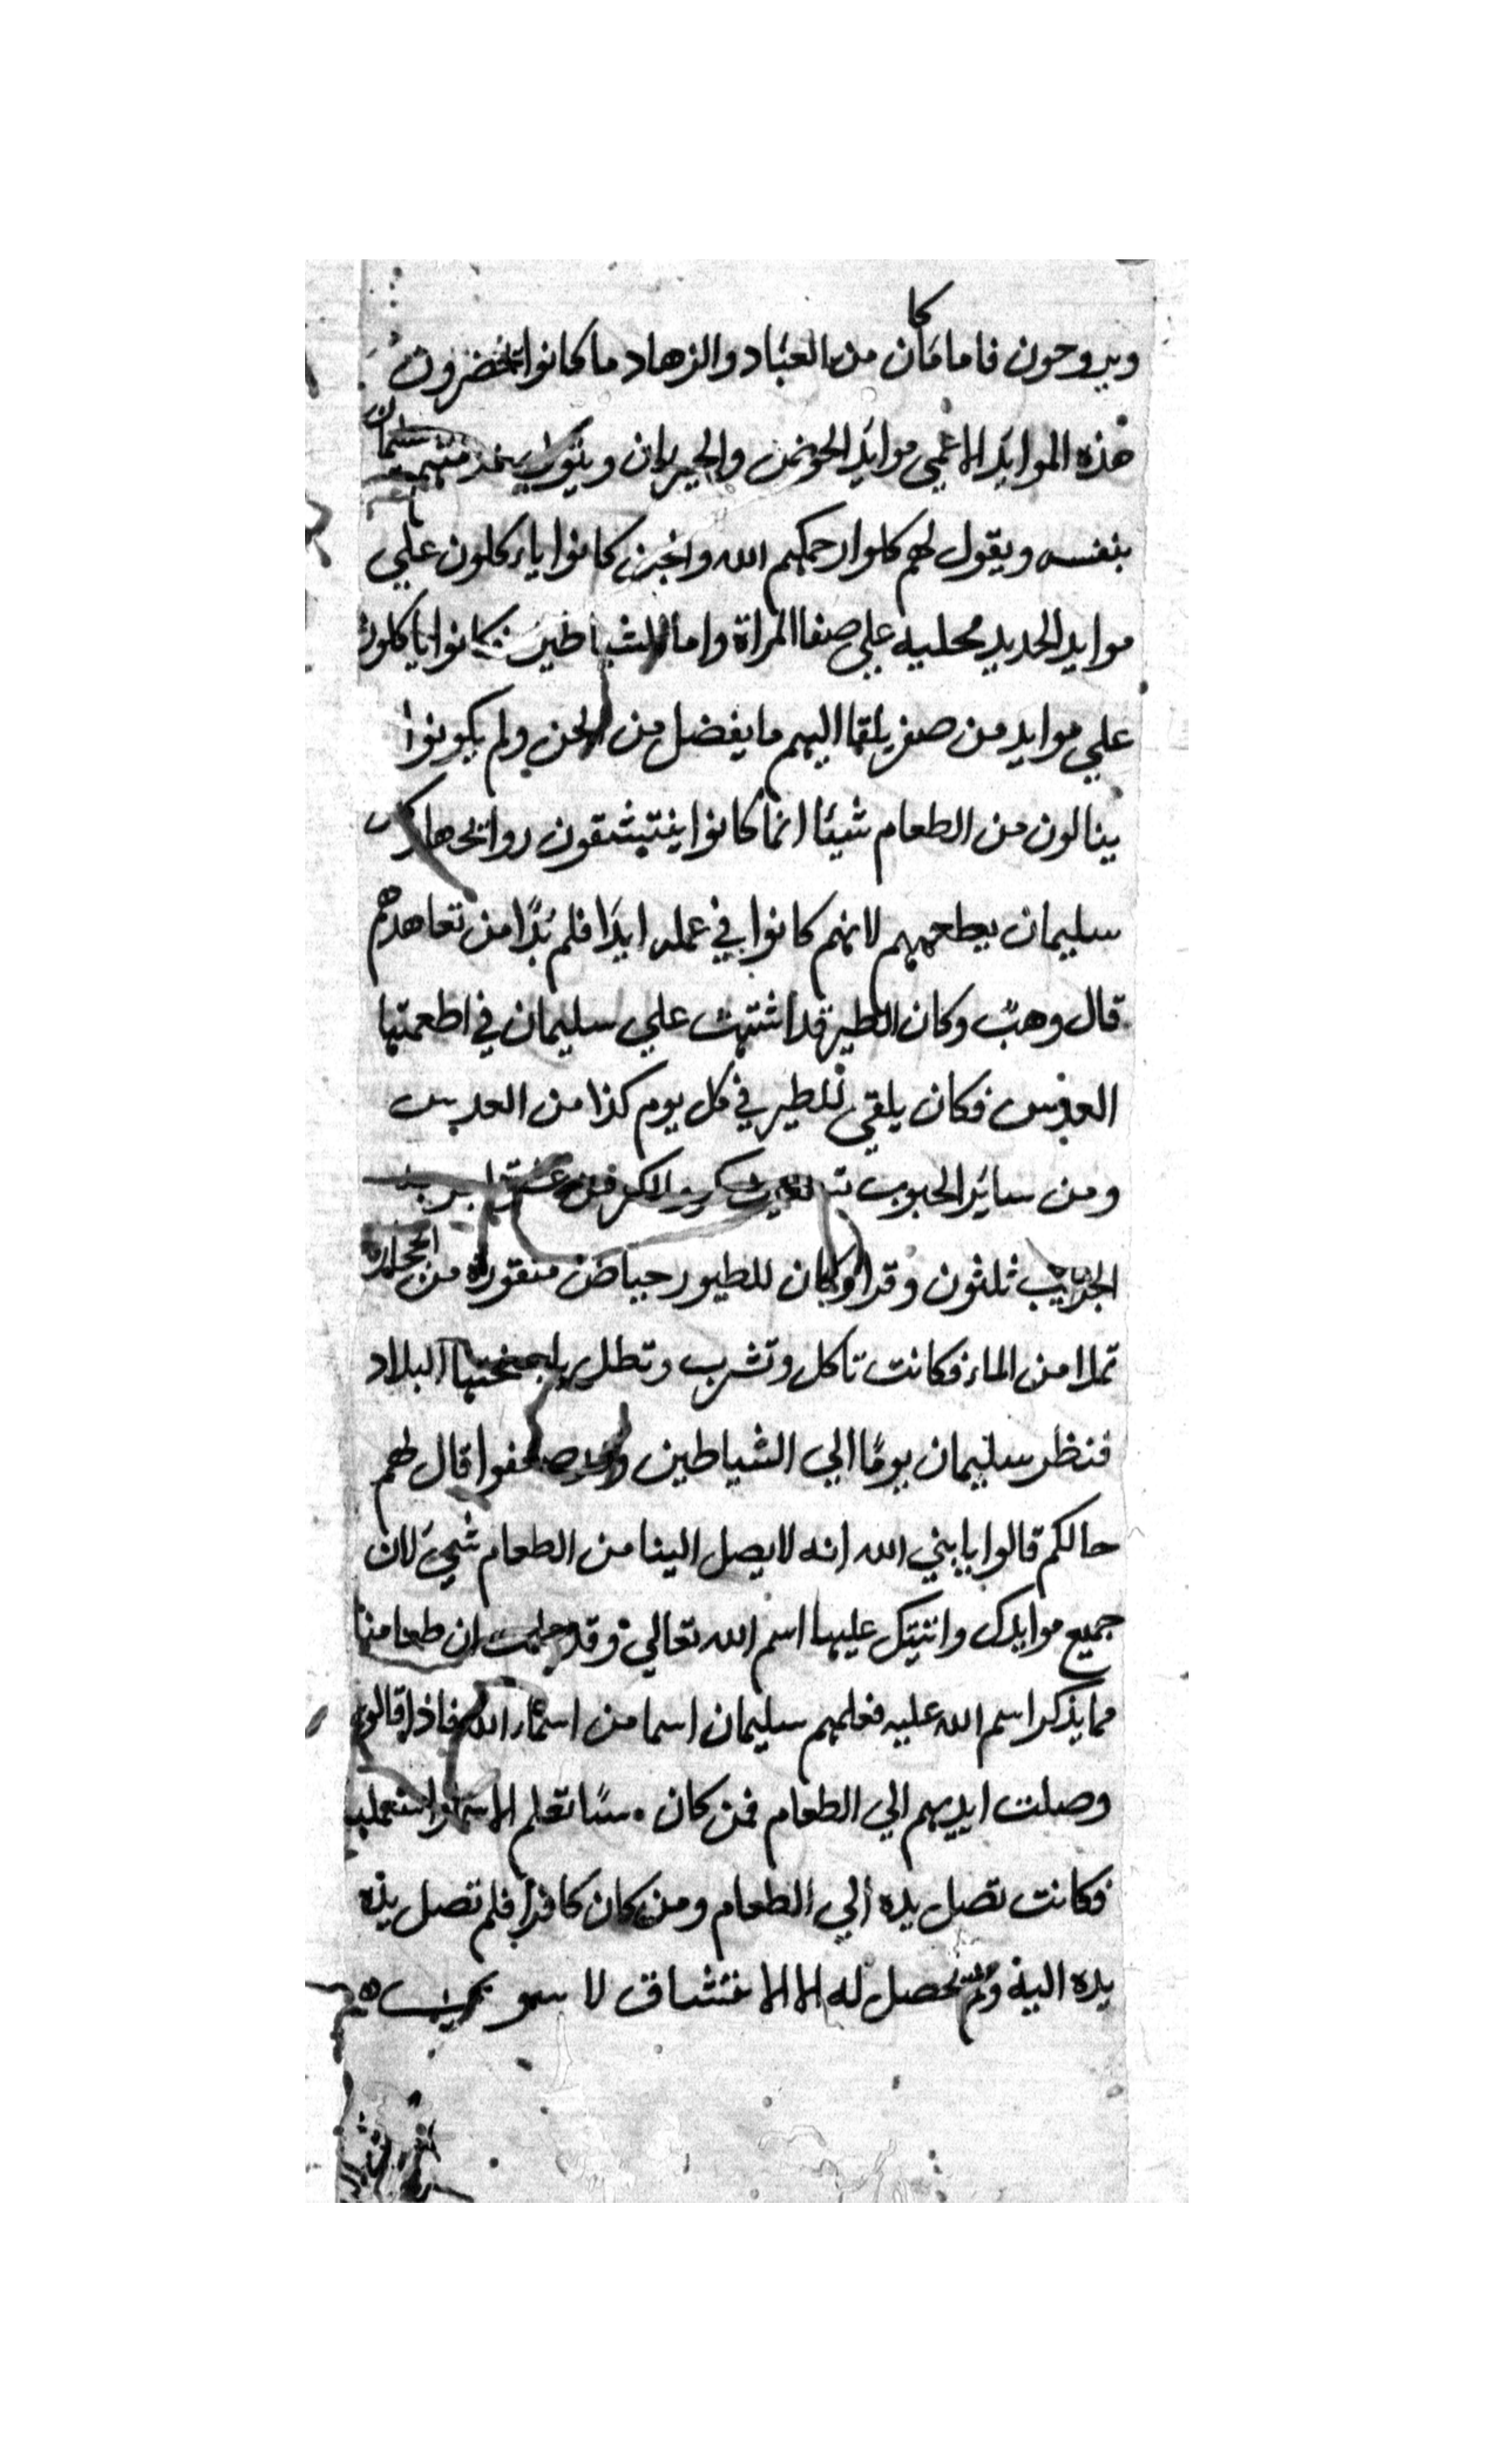 كا
ويروحون فاما من العباد والزهاد ما كانوا يحضرون
هذه الموايد الاعلي موايد الخوص سليمان
بنفسه ويقول لهم كلوا رحمكم الله والجن كانوا ياءكلون علي
موايد الحديد محليه علي صفا المراة واما الشياطين كانوا ياكلون
علي موايد من صفر يلقا اليهم ما يفضل من الجن ولم يكونوا
ينالون من الطعام شيئا انما كانوا ينتشقون روائحها
سليمان يطعمهم لانهم كانوا في عمله ابدا فلم بدا من تعاهدهم
قال وهب وكان الطير قد اشتهت علي سليمان في اطعمتها
العدس فكان يلقي للطير في كل يوم كذا من العدس
ومن سائر الحبوب
الجريب ثلثون وقرا وكان للطيور حياض منقورة من الحجارة
تملا من الماء فكانت تاكل وتشرب وتظل باجنحتها البلاد
فنظر سليمان يوما الي الشياطين وقد ضعفوا قال لهم
حالكم قالوا يا بني الله انه لا يصل الينا من الطعام شيء لان
جميع موايدك عليها اسم الله تعالي وقد ان طعامنا
مما يذكر اسم الله عليه فعلمهم سليمان اسما من اسماء الله فاذا قالوه
وصلت ايديهم الي الطعام فمن كان تعلم الاسم واستعمله
فكانت تصل يده الي الطعام ومن كان كافرا فلم تصل يده
يده اليه ولم تحصل له الا الاستنشاق لا سوي